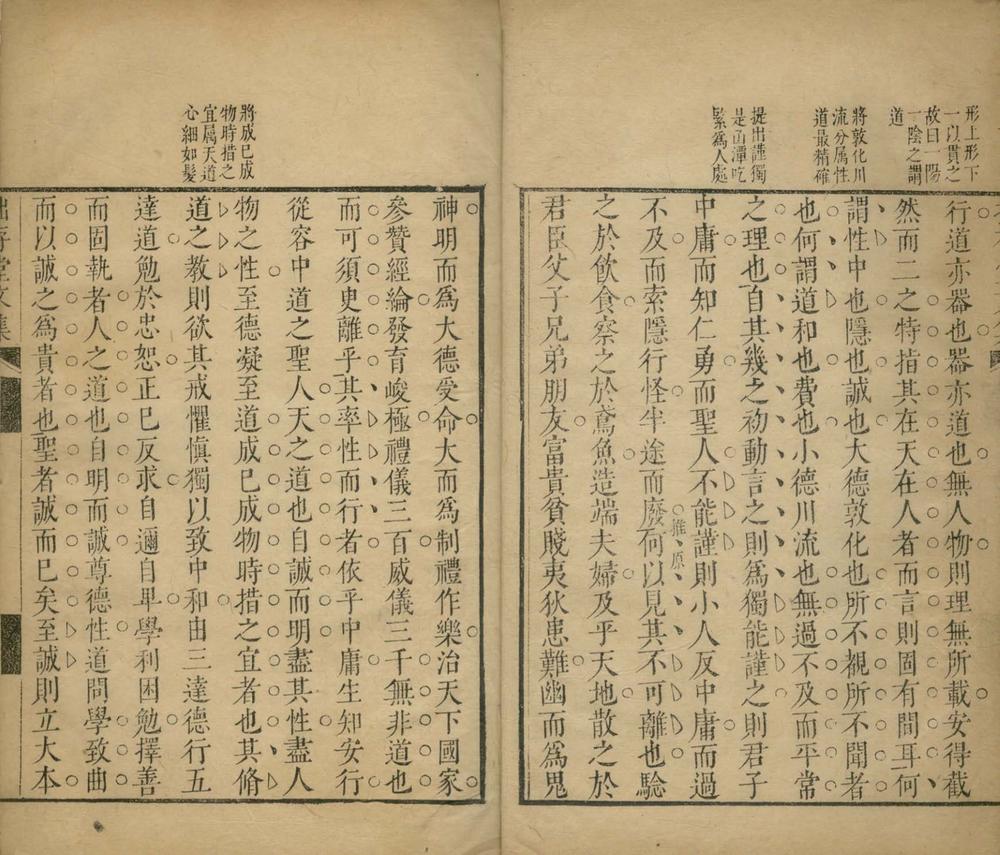 形上形下
一以貫之
故曰一陽
一陰之謂
道
將敦化川
流分属性
道最精確
提出謹獨
是函潭吃
緊爲人處
行道亦器也器亦道也無人物則理無所載安得截
然而二之特指其在天在人者而言則固有間耳何
謂性中也隱也誠也大德敦化也所不覩所不聞者
也何謂道和也費也小德川流也無過不及而平常
之理也自其幾之初動言之則爲獨能謹之則君子
中庸而知仁勇而聖人不能謹則小人反中庸而過
不及而索隱行怪半途而廢何以見其不可離也驗
推原
之於飮食察之於鳶魚造端夫婦及乎天地散之於
君臣父子兄弟朋友富貴貧賤夷狄患難幽而爲鬼
將成已成
物時措之
宜属天道
心細如髮
神明而爲大德受命大而爲制禮作樂治天下國家
參贊經綸發育峻極禮儀三百威儀三千無非道也
而可須臾離乎其率性而行者依乎中庸生知安行
從容中道之聖人天之道也自誠而明盡其性盡人
物之性至德凝至道成已成物時措之宜者也其脩
道之教則欲其戒懼愼獨以致中和由三達德行五
達道勉於忠恕正已反求自邇自卑學利困勉擇善
而固執者人之道也自明而誠尊德性道問學致曲
而以誠之爲貴者也聖者誠而已矣至誠則立大本